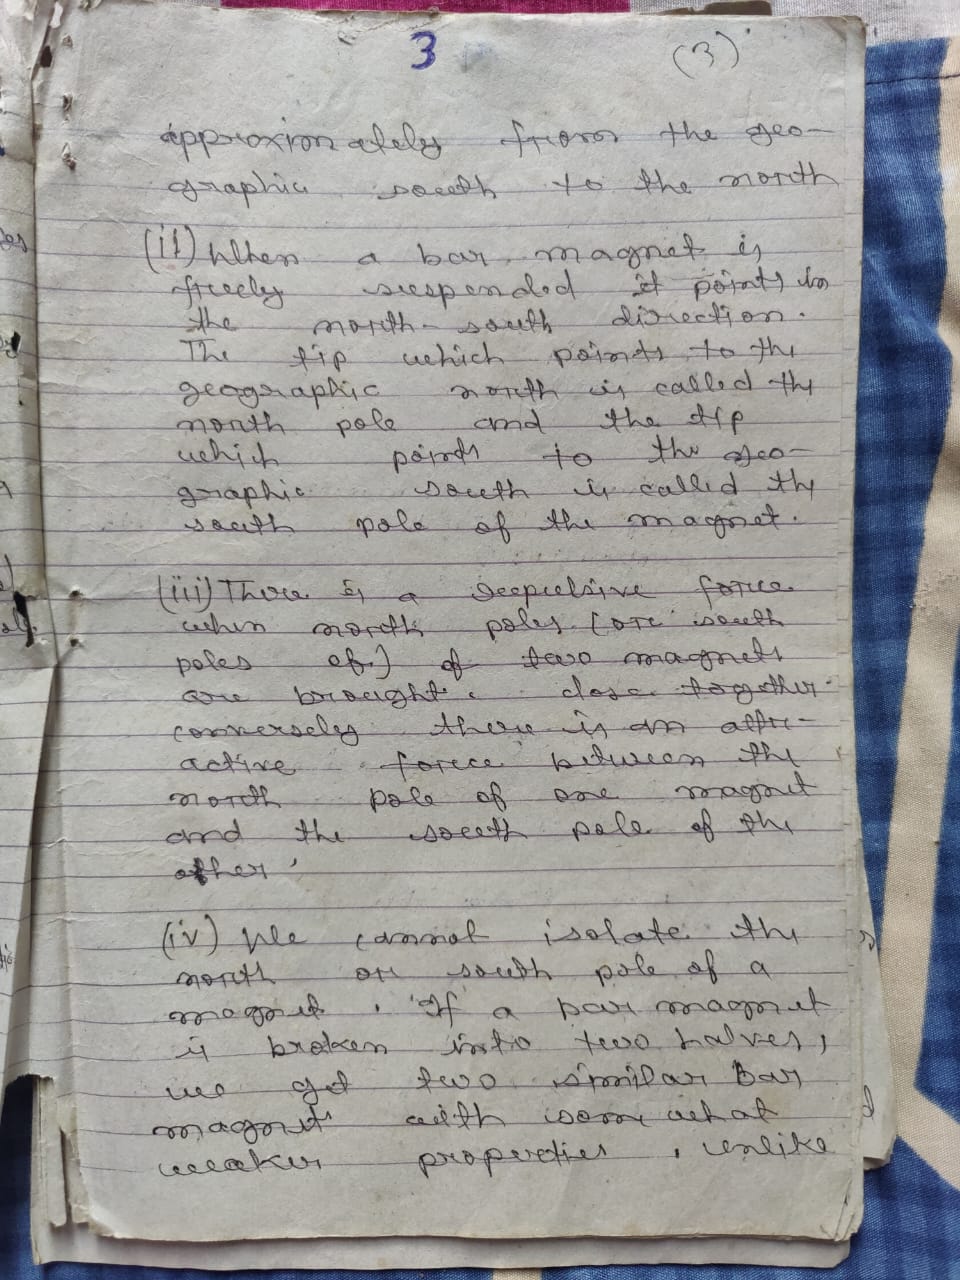 3 (3)
approximately from the geo-
graphic south to the north
(ii) When a bar magnet is
freely suspended it points in
the north-south direction.
The tip which points to the
geographic north is called the
north pole and the tip
which points to the geo-
graphic south is called the
south pole of the magnet.
(iii) There is a repulsive force
when north poles (or south
poles of) of two magnets
are brought close together.
conversely there is an attr-
active force between the
north pole of one magnet
and the south pole of the
other
(iv) We cannot isolate the
north or south pole of a
magnet. If a bar magnet
is broken into two halves,
we get two similar bar
magnet with somewhat
weaker properties, unlike